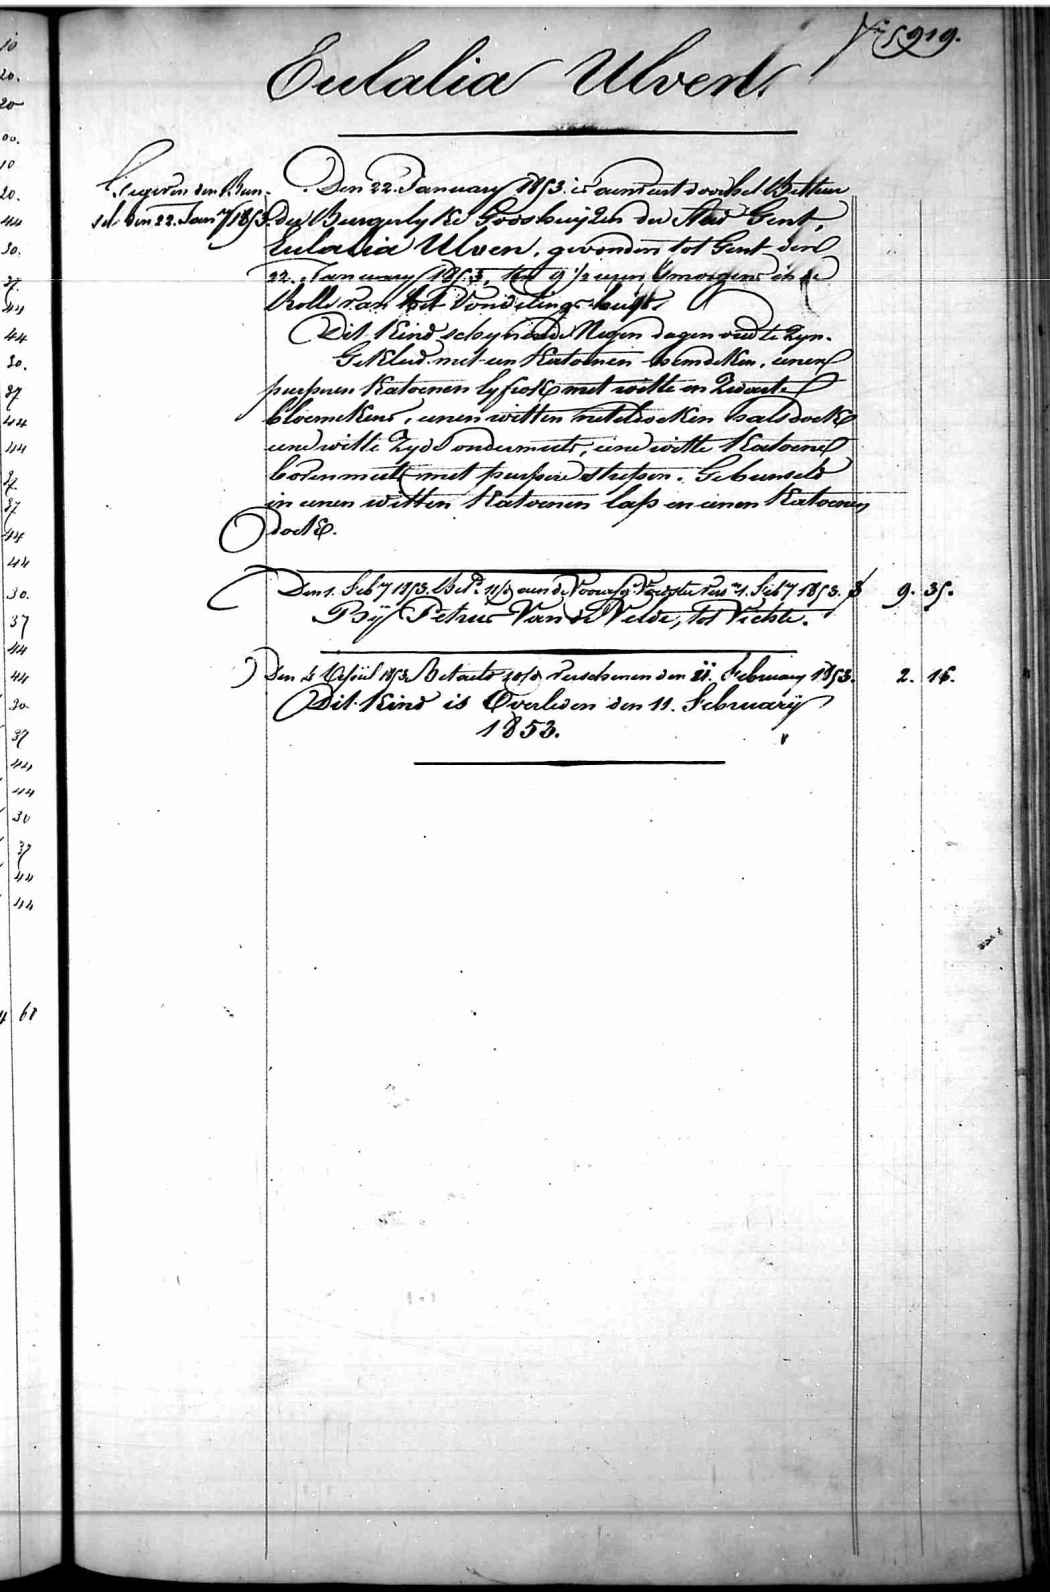 5919.
Eulalia Ulven.
Gegeven den Bun-
sel den 22. Janry 1853.
Den 22. January 1853. is aenveerd door het Bestier
der Burgerlyke Godshuyzen der Stad Gent,
Eulalia Ulven, gevonden tot Gent den
22. January 1853, ten 9 1/2 uren 'smorgens in de
Rolle van het Vondelings-huys.
Dit Kind schynende Negen dagen oud te Zyn.
Gekleed met een Katoenen hemdeken, eenen
purperen Katoenen lyfrok met witte en Zwarte
bloemekens, eenen witten neteldoeken halsdoek
eene witte Zyde ondermuts, eene witte Katoene
bovenmuts met purpere strepen. Gebunseld
in eenen witten Katoenen lap en eenen Katoenen
doek.
Den 1. Feby 1853. aen de 1. Feby 1853. 9. 35.
By Petrus Van de Velde, tot Vichte.
Den April 1853. Betaeld verschenen den 11. February 1853. 2. 16.
Dit Kind is Overleden den 11. February
1853.
10
20.
20
00.
10
20.
44
30.
37.
44
44
30.
37
44
44
37.
37
44
44
30.
37
44
44
30
37
44
44
30
37
44
44
68